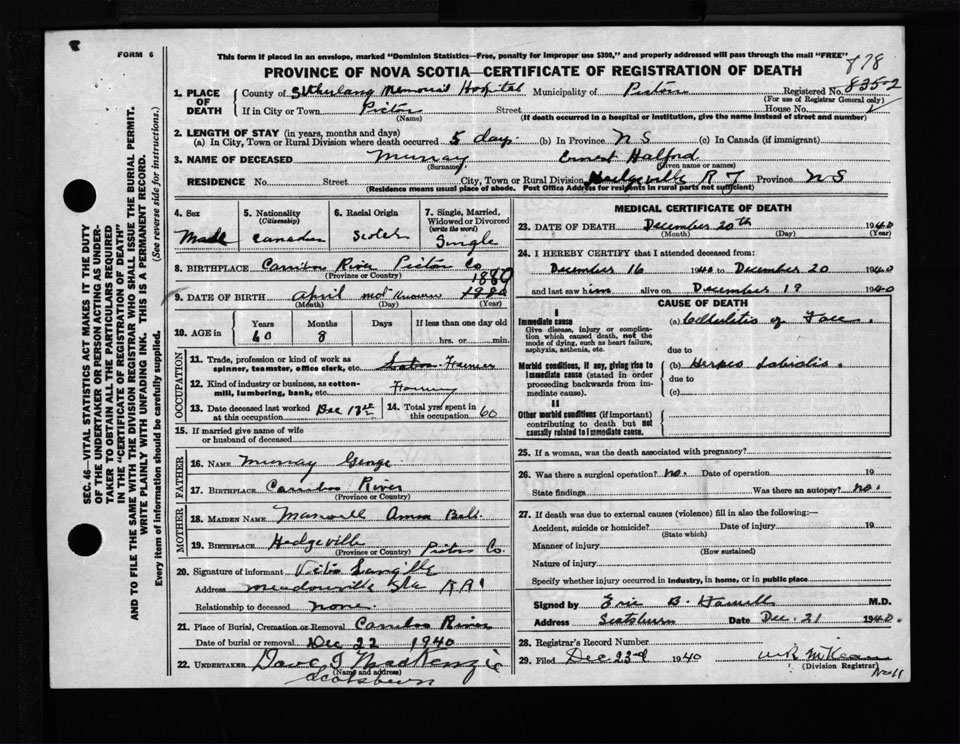 FORM 6
This form if placed in an envelope, marked "Dominion Statistics—Free, penalty for improper use $300," and properly addressed will pass through the mail "FREE"
878
PROVINCE OF NOVA SCOTIA—CERTIFICATE OF REGISTRATION OF DEATH
1. PLACE OF DEATH County of Sutherland Memorial Hospital Municipality of Pictou Registered No. 8352
(For use of Registrar General only)
If in City or Town Pictou Street House No.
(Name) (If death occurred in a hospital or institution, give the name instead of street and number)
2. LENGTH OF STAY (in years, months and days)
(a) In City, Town or Rural Division where death occurred 5 days (b) In Province N S (c) In Canada (if immigrant)
3. NAME OF DECEASED Murray Ernest Halford
(Surname) (Given name or names)
RESIDENCE No. Street City, Town or Rural Division Hedgeville Province N S
(Residence means usual place of abode. Post Office Address for residents in rural parts not sufficient)
4. Sex
5. Nationality (Citizenship)
6. Racial Origin
7. Single, Married, Widowed or Divorced (write the word)
Male Canadian Scotch Single
8. BIRTHPLACE Caribou River Pictou Co
(Province or Country)
1880
9. DATE OF BIRTH April not known
(Month) (Day) (Year)
10. AGE in Years Months Days If less than one day old
60 8 hrs. or min.
OCCUPATION
11. Trade, profession or kind of work as spinner, teamster, office clerk, etc. Farmer
12. Kind of industry or business, as cotton-mill, lumbering, bank, etc. Farming
13. Date deceased last worked at this occupation Dec 13th 14. Total yrs. spent in this occupation 60
15. If married give name of wife or husband of deceased
FATHER
16. NAME Murray George
17. BIRTHPLACE Caribou River
(Province or Country)
MOTHER
18. MAIDEN NAME Maxwell Anna Bell
19. BIRTHPLACE Hedgeville Pictou Co.
(Province or Country)
20. Signature of informant Langille
Address Meadowville Sta R R 1
Relationship to deceased none.
21. Place of Burial, Cremation or Removal Caribou River
Date of burial or removal Dec 22 1940
22. UNDERTAKER Dave J MacKenzie
(Name and address)
Scotsburn
MEDICAL CERTIFICATE OF DEATH
23. DATE OF DEATH December 20th 1940
(Month) (Day) (Year)
24. I HEREBY CERTIFY that I attended deceased from:
December 16 1940 to December 20 1940
and last saw him alive on December 19 1940
CAUSE OF DEATH
I
Immediate cause
Give disease, injury or complication which caused death, not the mode of dying, such as heart failure, asphyxia, asthenia, etc.
(a) Cellulitis of Face.
due to
Morbid conditions, if any, giving rise to Immediate cause (stated in order proceeding backwards from immediate cause).
(b) Herpes Labialis.
due to
(c)
II
Other morbid conditions (if important) contributing to death but not causally related to Immediate cause.
25. If a woman, was the death associated with pregnancy?
26. Was there a surgical operation? no. Date of operation 19
State findings Was there an autopsy? no.
27. If death was due to external causes (violence) fill in also the following:—
Accident, suicide or homicide? Date of injury 19
(State which)
Manner of injury
(How sustained)
Nature of injury
Specify whether injury occurred in industry, in home, or in public place
Signed by Eric B. M.D.
Address Scotsburn Date Dec. 21 1940.
28. Registrar's Record Number
29. Filed Dec 23rd 1940 McKean
(Division Registrar)
No 11
SEC. 46—VITAL STATISTICS ACT MAKES IT THE DUTY
OF THE UNDERTAKER OR PERSON ACTING AS UNDER-
TAKER TO OBTAIN ALL THE PARTICULARS REQUIRED
IN THE "CERTIFICATE OF REGISTRATION OF DEATH"
AND TO FILE THE SAME WITH THE DIVISION REGISTRAR WHO SHALL ISSUE THE BURIAL PERMIT.
WRITE PLAINLY WITH UNFADING INK. THIS IS A PERMANENT RECORD.
Every item of information should be carefully supplied. (See reverse side for instructions.)